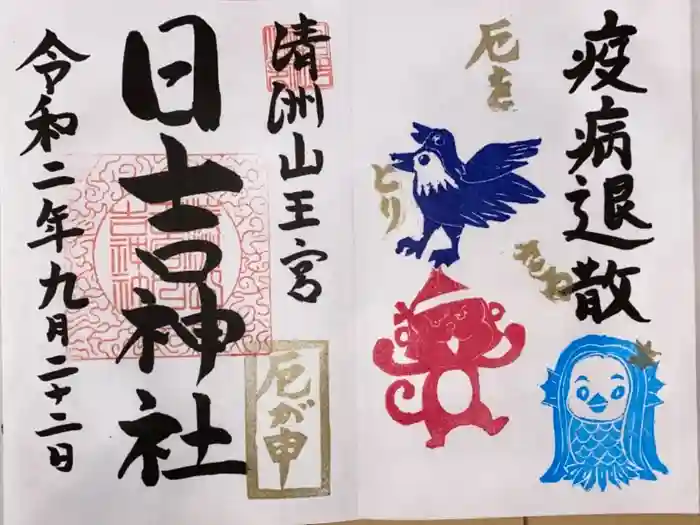 疫病退散
厄を
とり
たわ
清洲山王宮
日吉神社
厄が申
令和二年九月二十二日